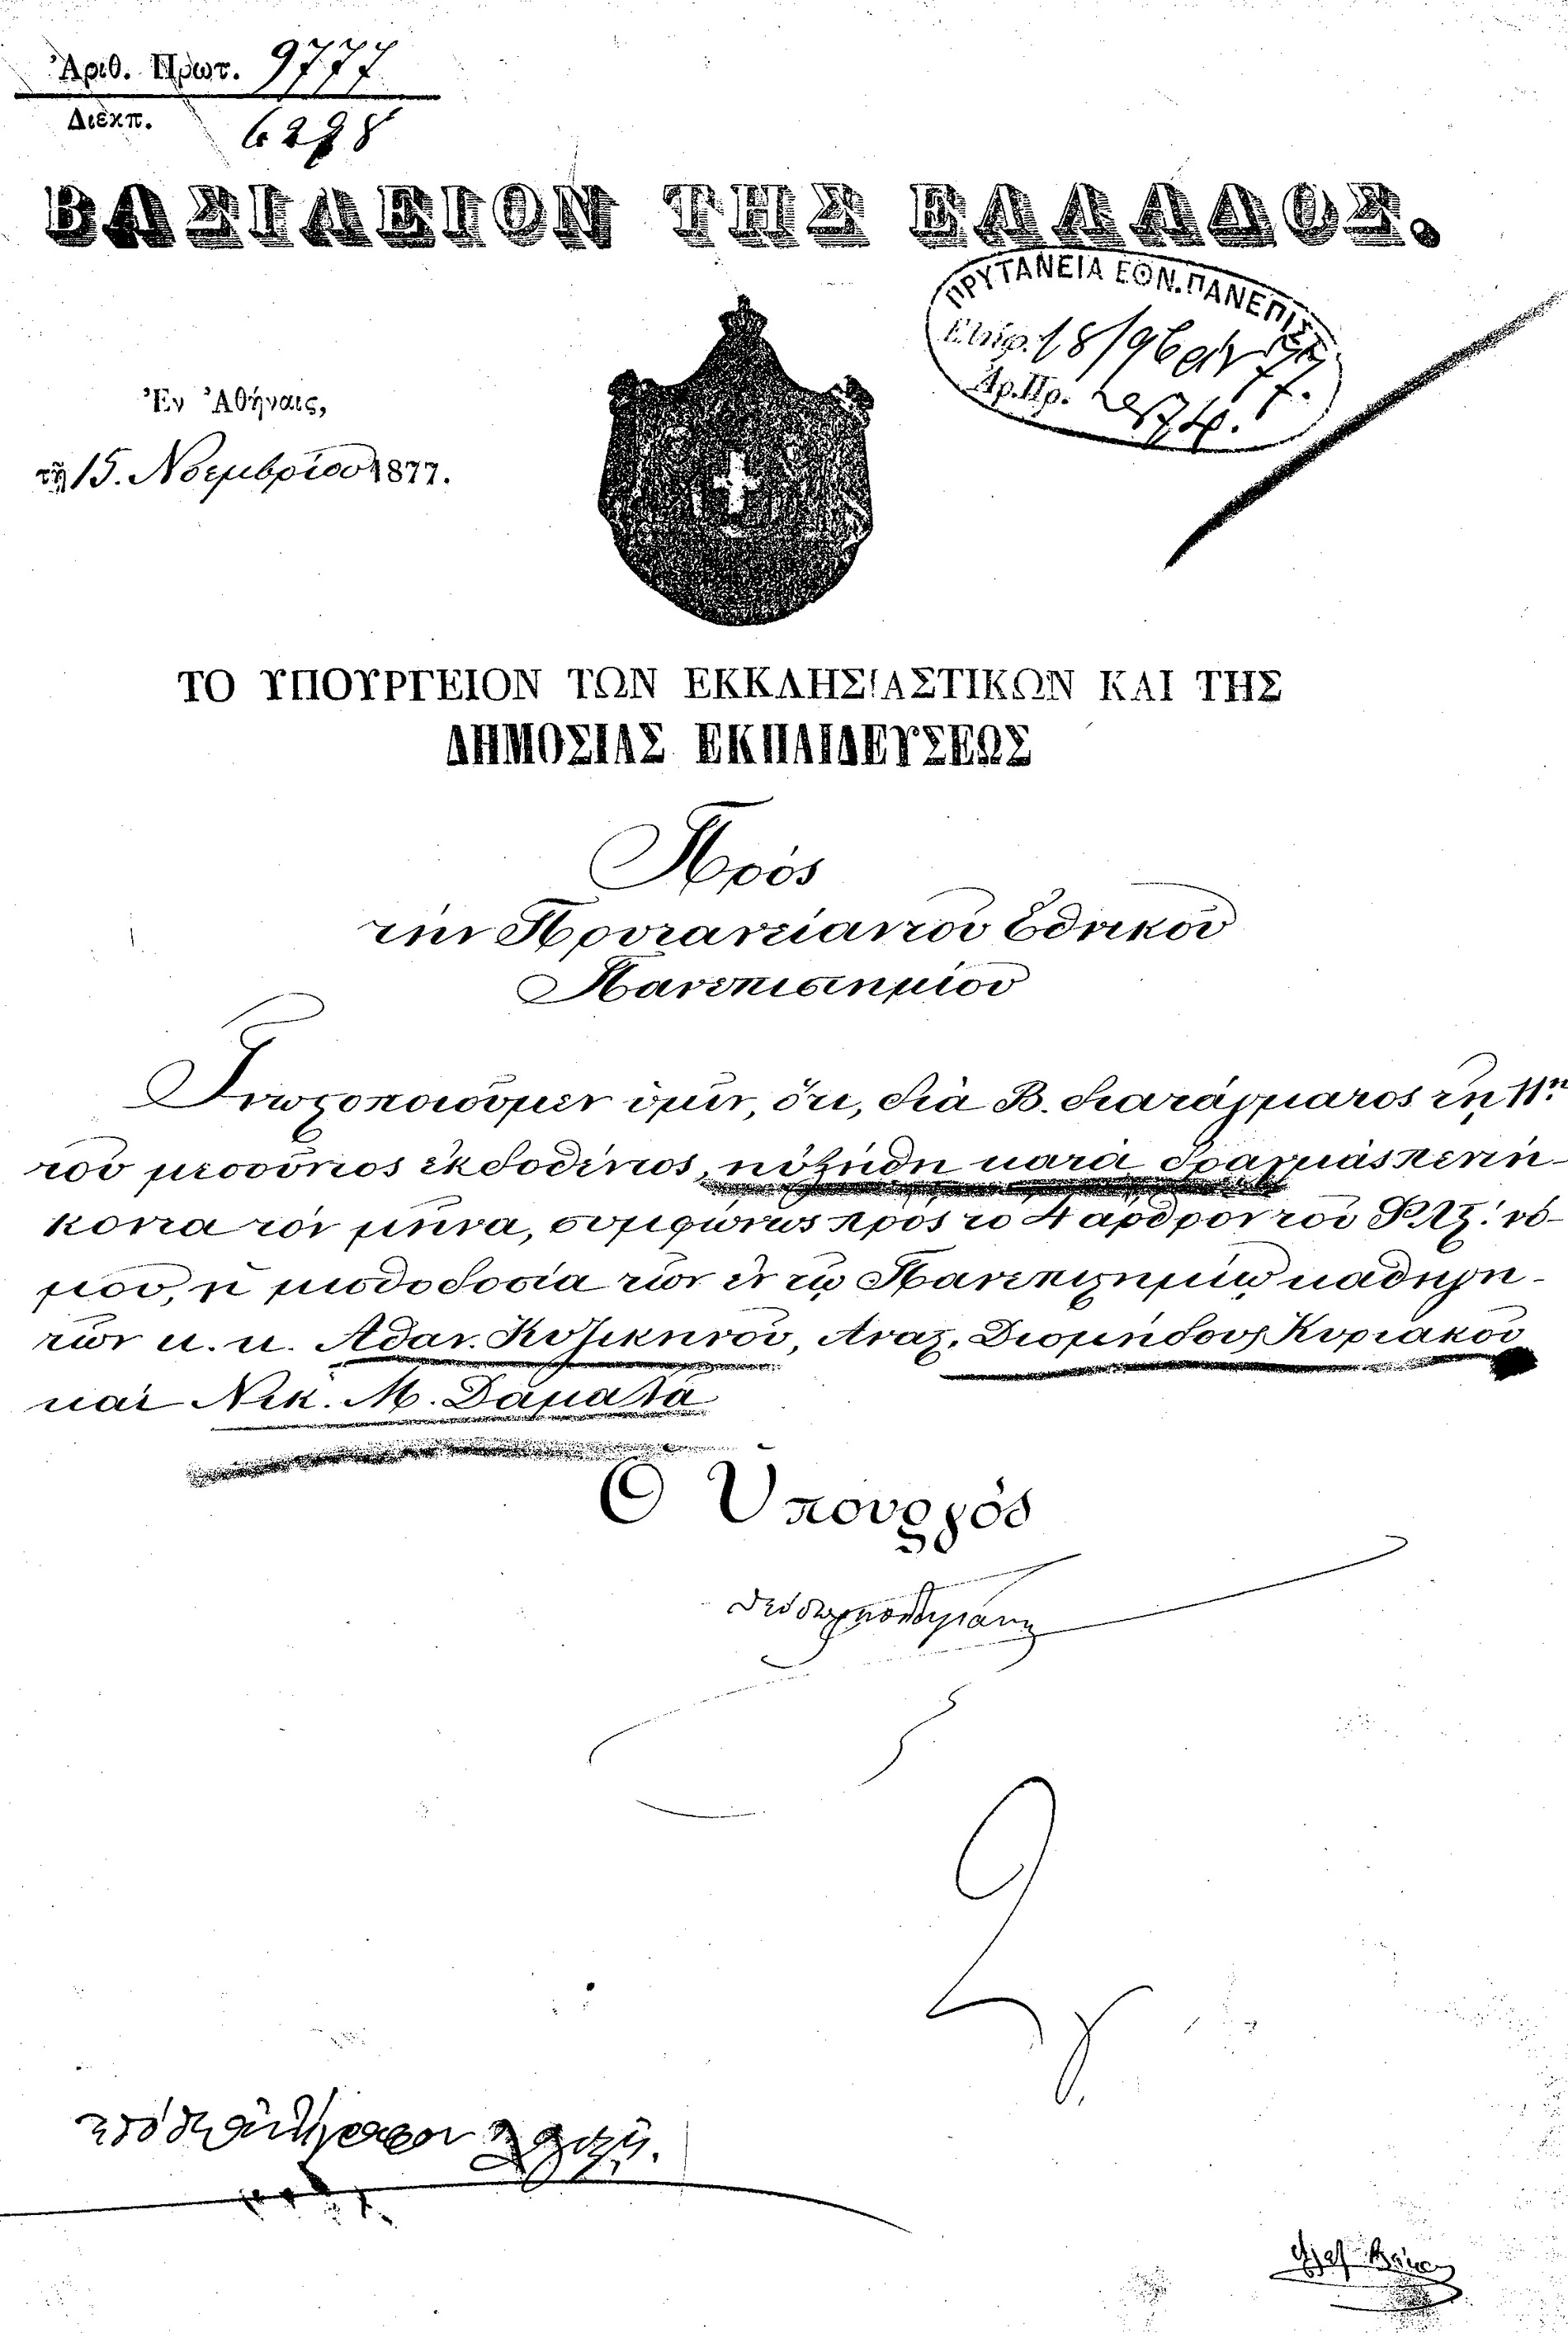 Ἀριθ. Πρωτ. 9777
Διεκπ. 6278
ΒΑΣΙΛΕΙΟΝ ΤΗΣ ΕΛΛΑΔΟΣ.
ΠΡΥΤΑΝΕΙΑ ΕΘΝ. ΠΑΝΕΠΙΣΤ.
Ἐλήφ. 18/9βρ 77.
Ἀρ. Πρ.
Ἐν Ἀθήναις,
τῇ 15. Νοεμβρίου 1877.
ΤΟ ΥΠΟΥΡΓΕΙΟΝ ΤΩΝ ΕΚΚΛΗΣΙΑΣΤΙΚΩΝ ΚΑΙ ΤΗΣ
ΔΗΜΟΣΙΑΣ ΕΚΠΑΙΔΕΥΣΕΩΣ
Πρός
τήν Πρυτανείαν τοῦ Ἐθνικοῦ
Πανεπιστημίου
Γνωστοποιοῦμεν ὑμῖν, ὅτι, διὰ Β. διατάγματος τῇ 11ῃ
τοῦ μεσοῦντος ἐκδοθέντος, ηὐξήθη κατὰ δραχμὰς πεντή-
κοντα τόν μῆνα, συμφώνως πρός το 4 άρθρον τοῦ ΡΛΞ! νό-
μου, ἡ μισθοδοσία τῶν ἐν τῷ Πανεπιστημίῳ καθηγη-
τῶν κ. κ. Αθαν. Κυζικηνοῦ, Αναστ. Διομήδους Κυριακοῦ
καὶ Νικ. Μ. Δαμαλᾶ
Ὁ Ὑπουργός